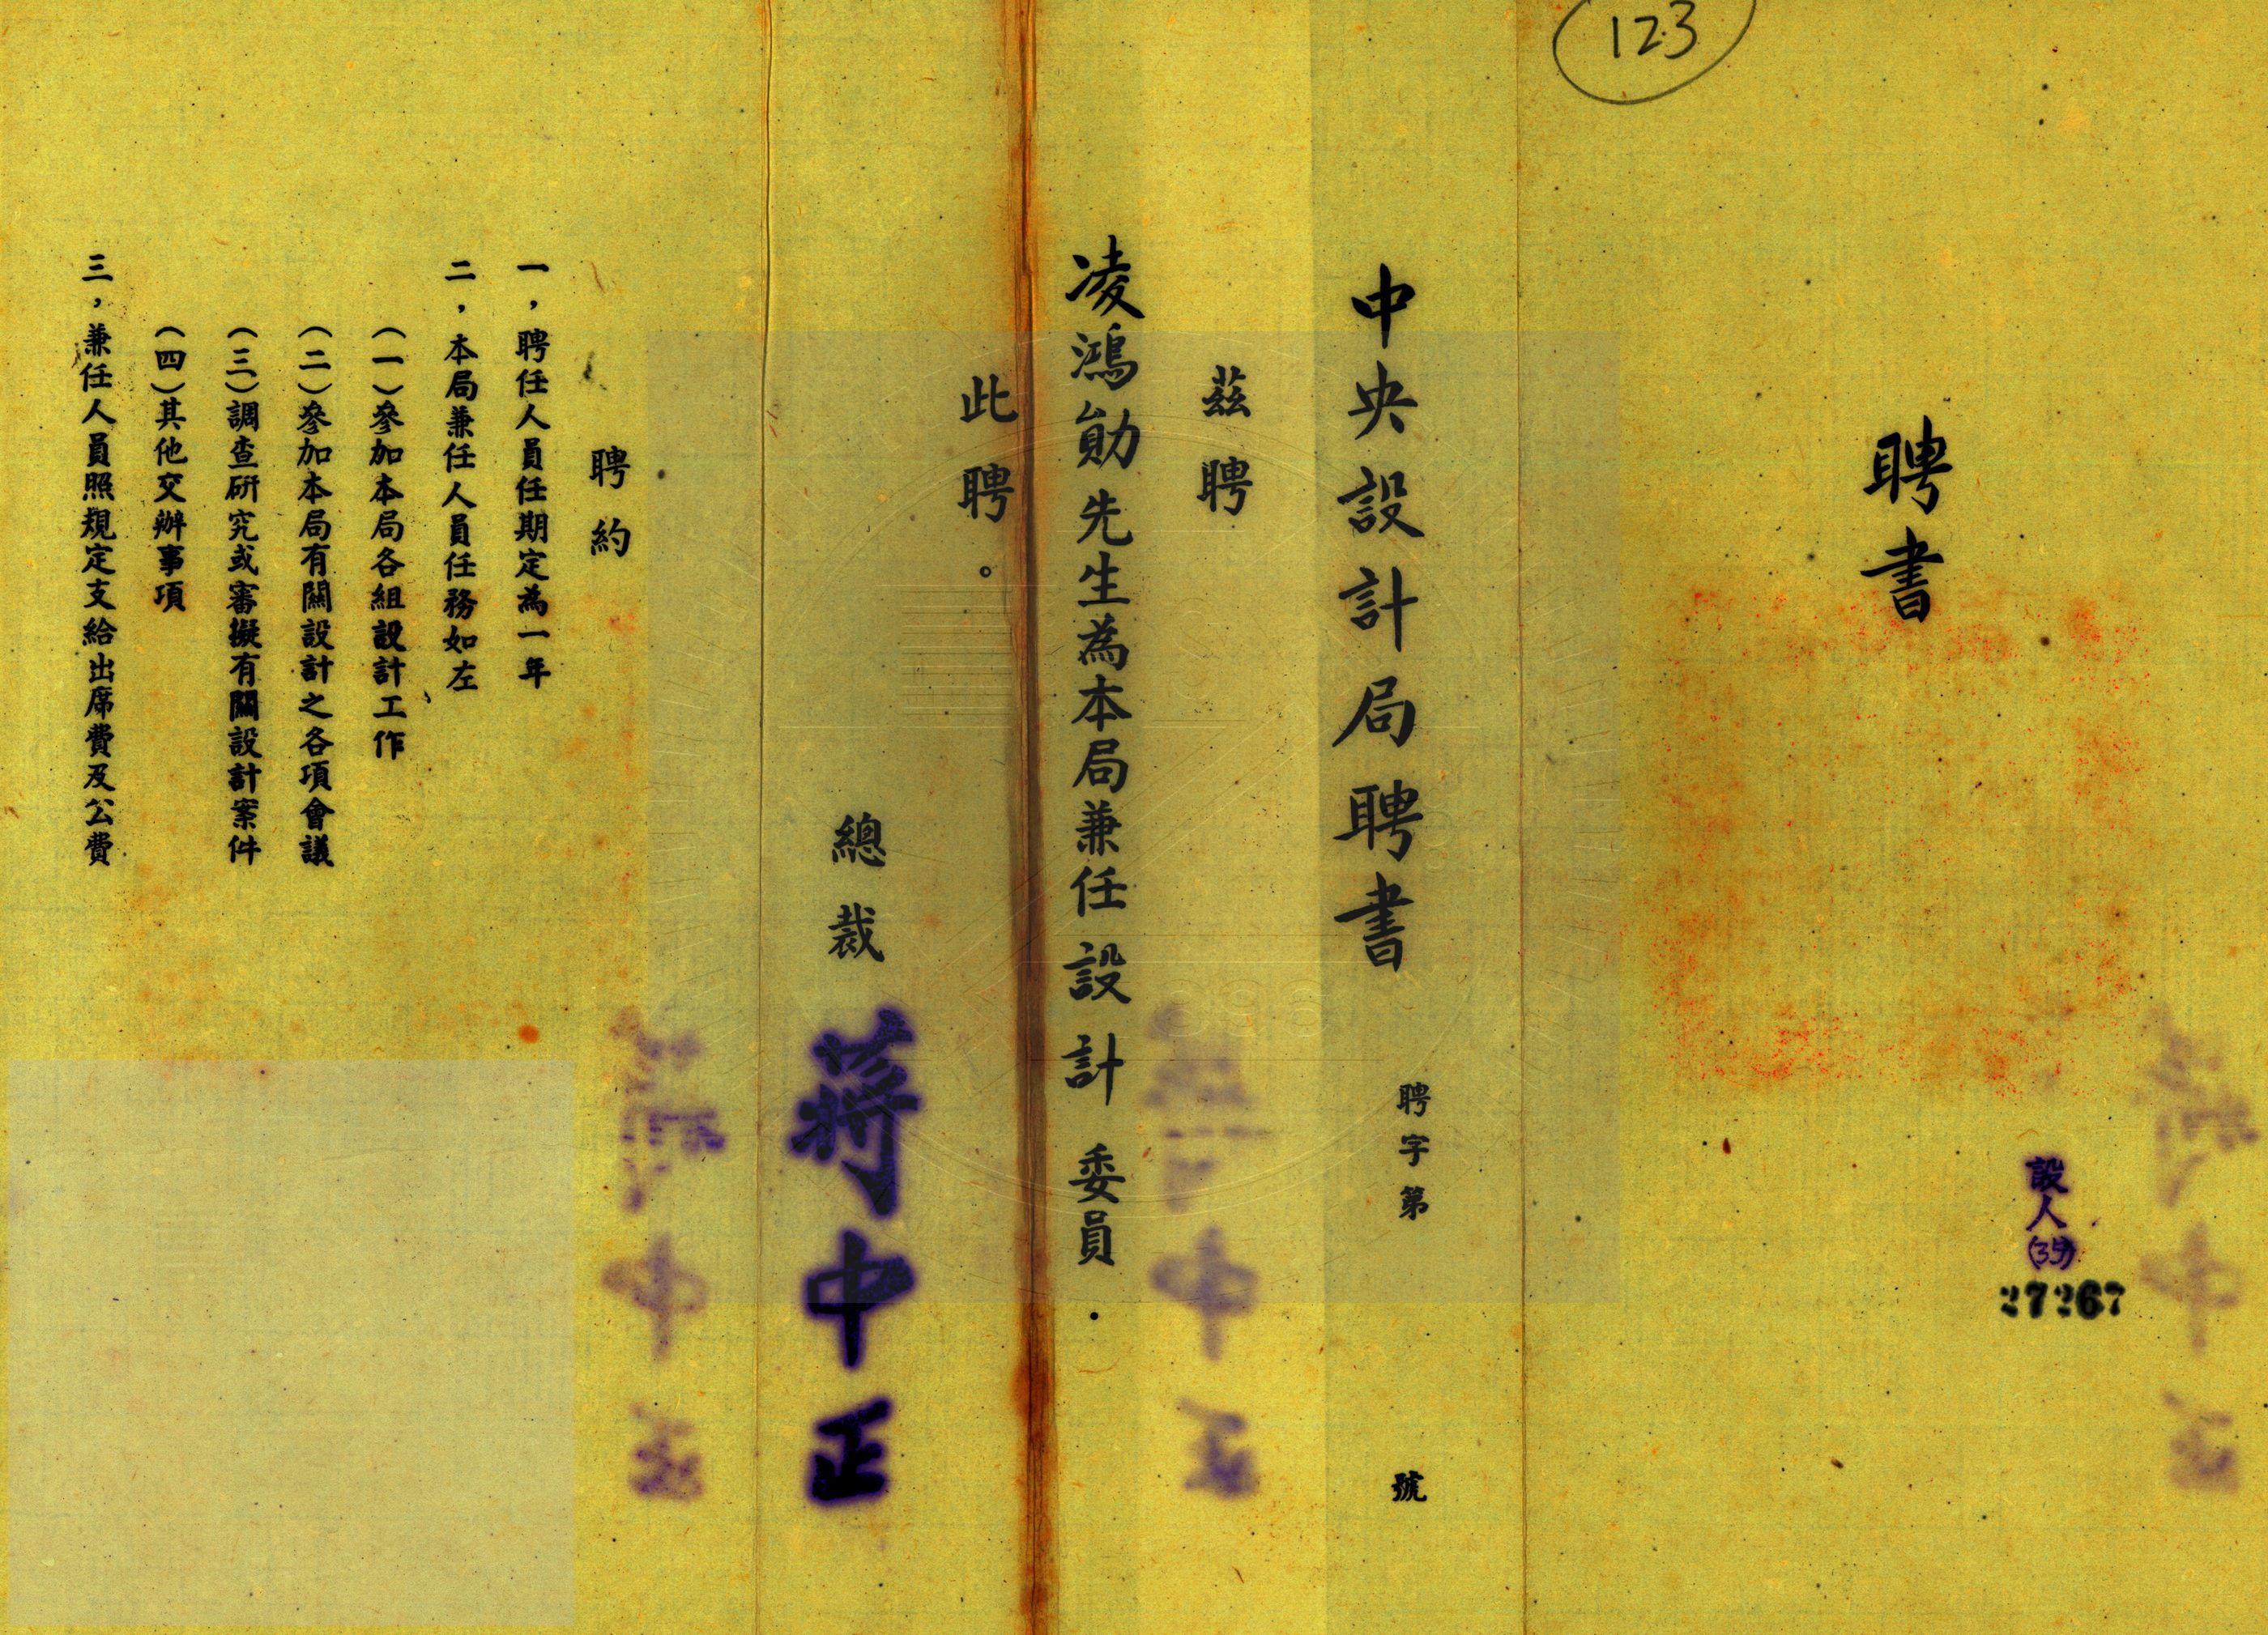 123
聘書
設人(35)
27267
中央設計局聘書
聘字第 號
茲聘
凌鴻勛先生為本局兼任設計委員
此聘。
總裁 蔣中正
聘約
一，聘任人員任期定為一年
二，本局兼任人員任務如左
(一)參加本局各組設計工作
(二)參加本局有關設計之各項會議
(三)調查研究或審擬有關設計案件
(四)其他交辦事項
三，兼任人員照規定支給出席費及公費